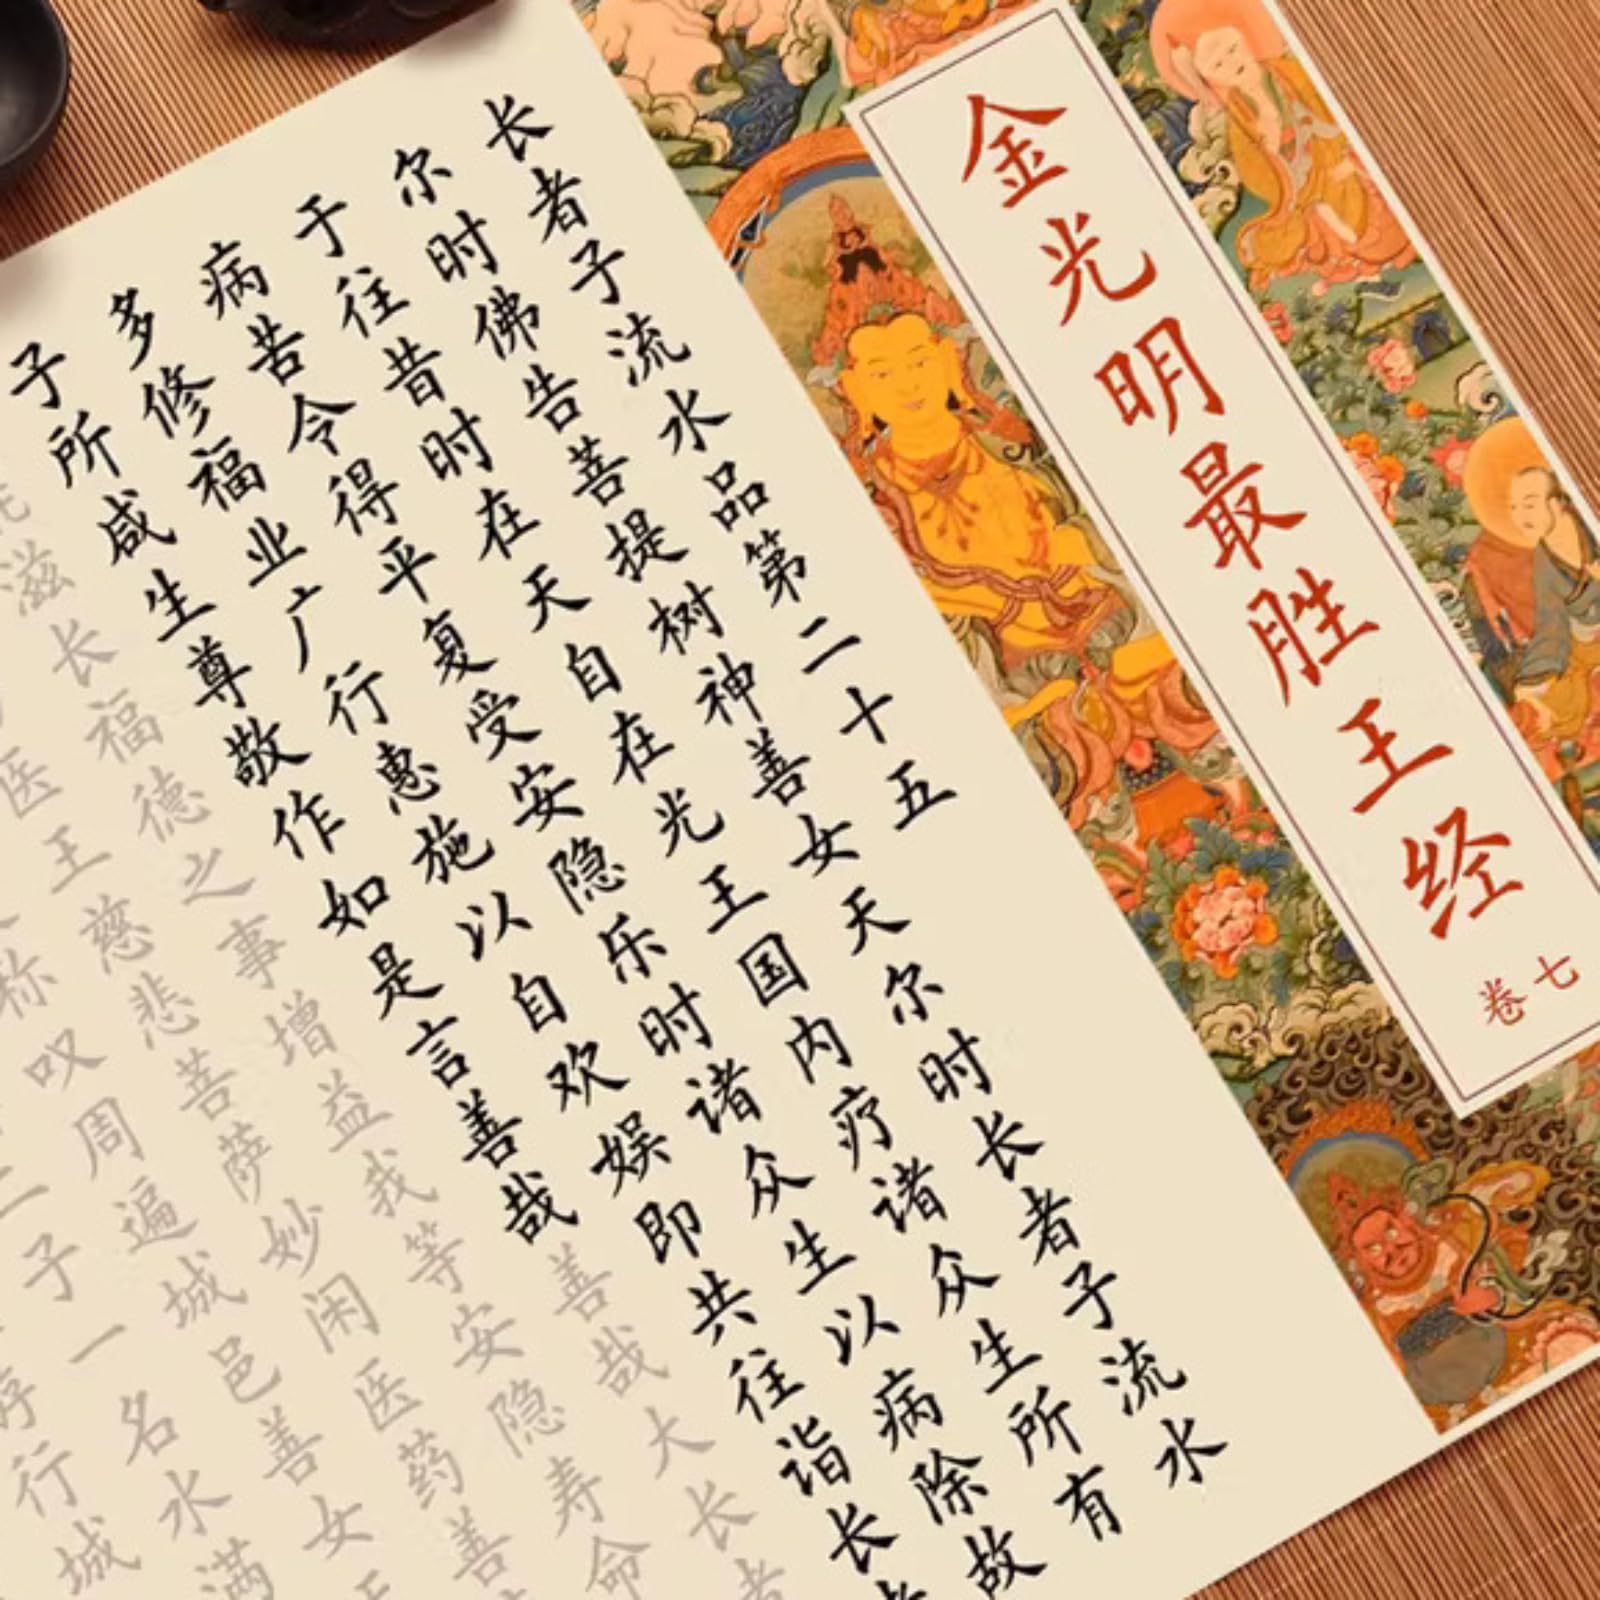 金光明最胜王经
卷七
长者子流水品第二十五
尔时佛告菩提树神善女天尔时长者子流水
于往昔时在天自在光王国内疗诸众生所有
病苦令得平复受安隐乐时诸众生以病除故
多修福业广行惠施以自欢娱即共往诣长
子所咸生尊敬作如是言善哉善哉大长者
滋长福德之事增益我等安隐寿命
医王慈悲菩萨妙闲医药善
称叹周遍城邑善女
二子一名水满
行城